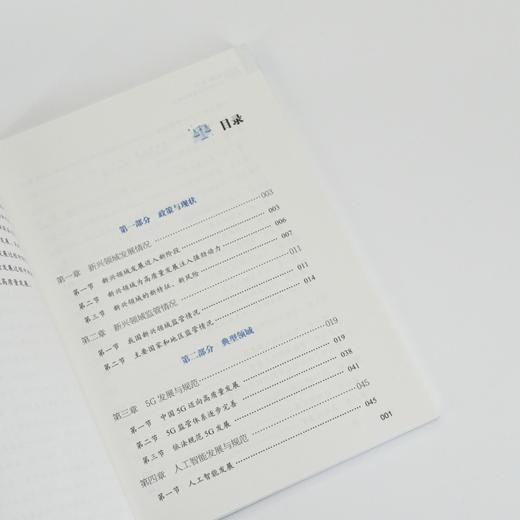 目录
第一部分 政策与现状
第一章 新兴领域发展情况 003
第一节 新兴领域发展进入新阶段 003
第二节 新兴领域为高质量发展注入强劲动力 006
第三节 新兴领域的新特征、新风险 007
第二章 新兴领域监管情况 011
第一节 我国新兴领域监管情况 011
第二节 主要国家和地区监管情况 014
第二部分 典型领域
第三章 5G发展与规范 019
第一节 中国5G迈向高质量发展 019
第二节 5G监管体系逐步完善 038
第三节 依法规范5G发展 041
第四章 人工智能发展与规范 045
第一节 人工智能发展 045
001